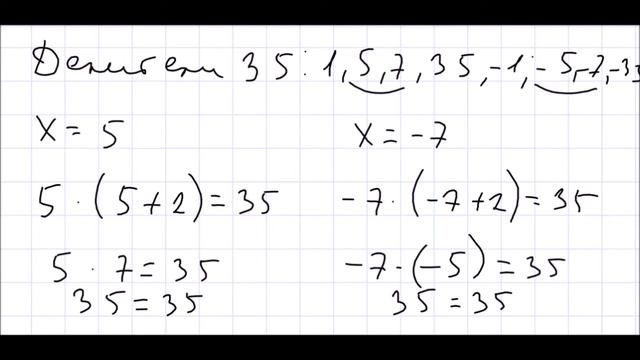 Делители 35: 1, 5, 7, 35, -1, -5, -7, -35
x = 5 x = -7
5 · (5+2) = 35 -7 · (-7+2) = 35
5 · 7 = 35 -7 · (-5) = 35
35 = 35 35 = 35